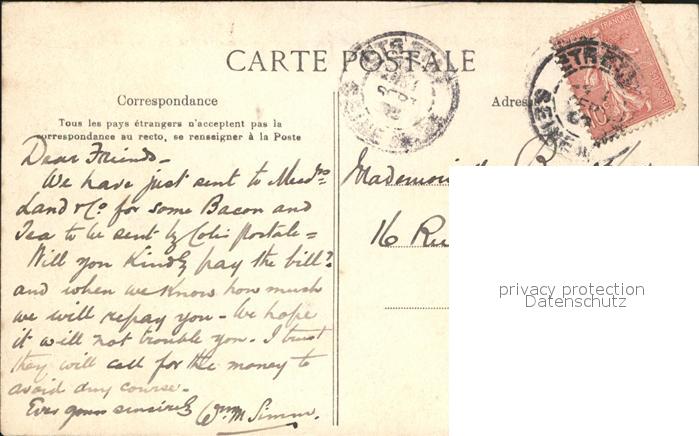 CARTE POSTALE
Correspondance
Tous les pays étrangers n'acceptent pas la
correspondance au recto, se renseigner à la Poste
Dear Friends -
We have just sent to
Land & Co. for some Bacon and
Tea to be sent by Colis Postale =
Will you Kindly pay the bill?
and when we Know how much
we will repay you - We hope
it will not trouble you. I trust
they will call for the money to
avoid any course -
Ever yours sincerely Wm M Simm.
Adres
Mademoi
16 Ru
privacy protection
Datenschutz